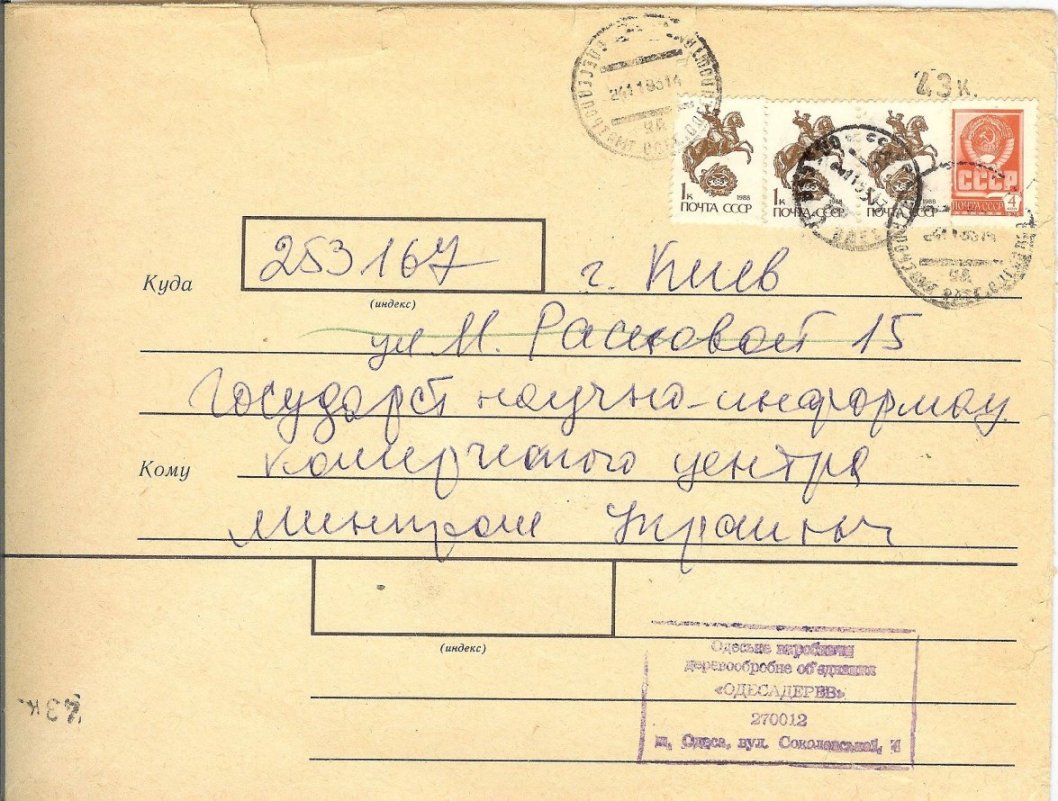 43 к.
1к
1988
ПОЧТА СССР
1к
1988
ПОЧТА СССР
1к
1988
ПОЧТА СССР
СССР
ПОЧТА СССР
4
Куда
253167
г. Киев
(индекс)
ул М. Расковой 15
Государст научно-информац
Кому
комерческого центра
минпром Украины
(индекс)
Одеське виробниче
деревообробне об'єднання
«ОДЕСАДЕРЕВ»
270012
м. Одеса, вул.
43 к.